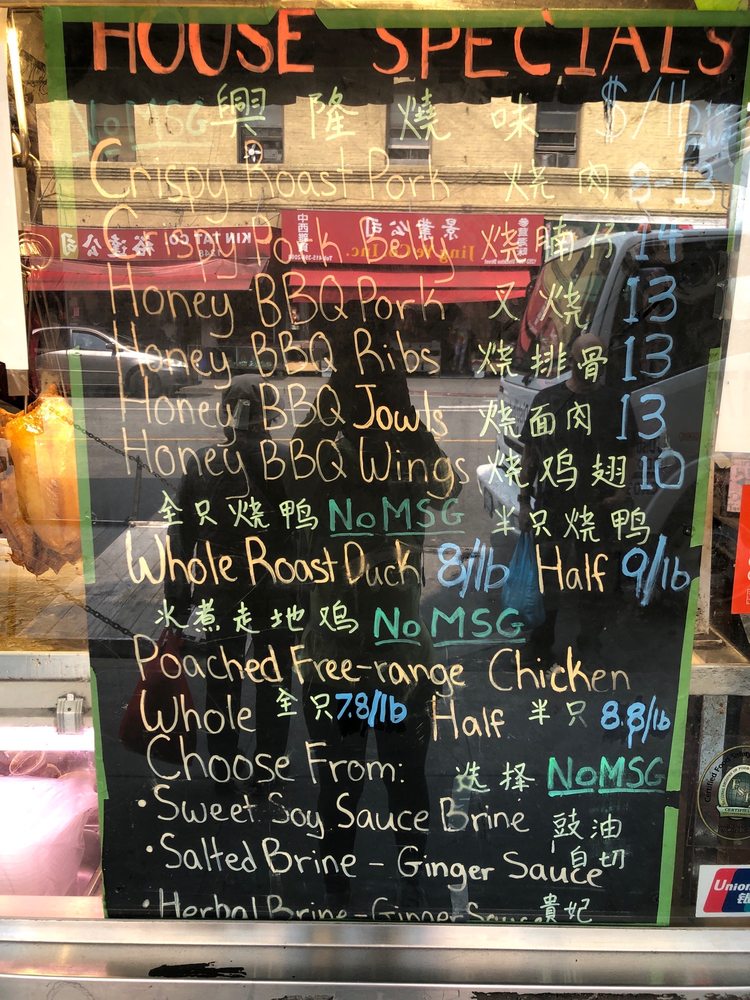 HOUSE SPECIALS
No MSG 興隆燒味 $/lb
Crispy Roast Pork 烧肉 8-13
Crispy Pork Belly 烧腩仔 14
Honey BBQ Pork 叉烧 13
Honey BBQ Ribs 烧排骨 13
Honey BBQ Jowls 烧面肉 13
Honey BBQ Wings 烧鸡翅 10
全只烧鸭 No MSG 半只烧鸭
Whole Roast Duck 8/lb Half 9/lb
水煮走地鸡 No MSG
Poached Free-range Chicken
Whole 全只 7.8/lb Half 半只 8.8/lb
Choose From: 选择 No MSG
• Sweet Soy Sauce Brine 豉油
• Salted Brine - Ginger Sauce 白切
• Herbal Brine - Ginger Sauce 貴妃
KIN TAT CO.
裕達公司
景業公司
Jing Ye Co Inc.
Union